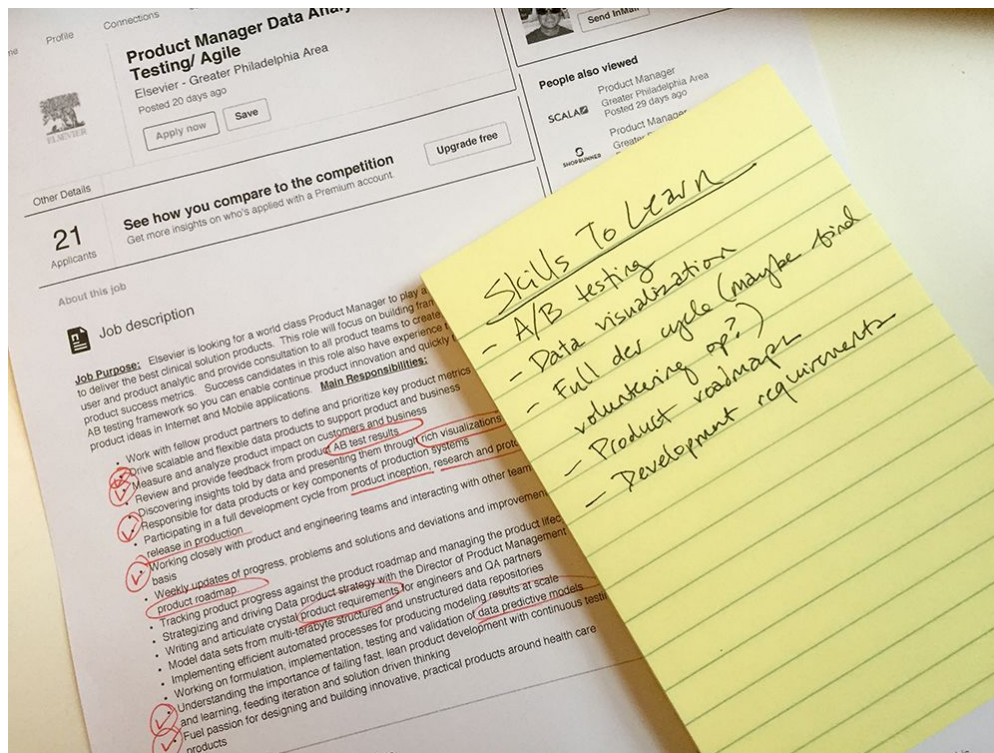 Profile
Connections
Product Manager Data
Testing/ Agile
Elsevier - Greater Philadelphia Area
Posted 20 days ago
Apply now
Save
ELSEVIER
Send InMail
People also viewed
SCALA
Product Manager
Greater Philadelphia Area
Posted 29 days ago
Product Manager
Other Details
21
Applicants
See how you compare to the competition
Get more insights on who's applied with a Premium account
Upgrade free
About this job
Job description
Job Purpose: Elsevier is looking for a world class Product Manager to play a
to deliver the best clinical solution products. This role will focus on building
user and product analytic and provide consultation to all product teams to create
product success metrics. Success candidates in this role also have experience
AB testing framework so you can enable continue product innovation and quickly
product ideas in Internet and Mobile applications. Main Responsibilities:
• Work with fellow product partners to define and prioritize key product metrics
• Drive scalable and flexible data products to support product and business
• Measure and analyze product impact on customers and business
• Review and provide feedback from product AB test results
• Discovering insights told by data and presenting them through rich visualizations
• Responsible for data products or key components of production systems
• Participating in a full development cycle from product inception, research and
release in production
• Working closely with product and engineering teams and interacting with other
basis
• Weekly updates of progress, problems and solutions and deviations and
product roadmap
Tracking product progress against the product roadmap and managing the product
• Strategizing and driving Data product strategy with the Director of Product Management
• Writing and articulate crystal product requirements for engineers and QA partners
• Model data sets from multi-terabyte structured and unstructured data repositories
• Implementing efficient automated processes for producing modeling results at scale
• Working on formulation, implementation, testing and validation of data predictive models
• Understanding the importance of failing fast, lean product development with continuous
and learning, feeding iteration and solution driven thinking
• Fuel passion for designing and building innovative, practical products around health care
products
Skills To Learn
- A/B testing
- Data visualization
- Full dev cycle (maybe find
volunteering op?)
- Product roadmaps
- Development requirements